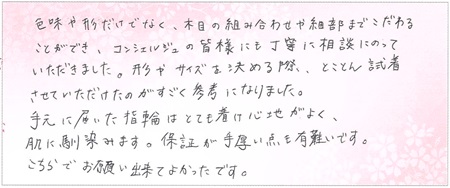 色味や形だけでなく、木目の組み合わせや細部までこだわる
ことができ、コンシェルジュの皆様にも丁寧に相談にのって
いただきました。形やサイズを決める際、とことん試着
させていただけたのがすごく参考になりました。
手元に届いた指輪はとても着け心地がよく、
肌に馴染みます。保証が手厚い点も有難いです。
こちらでお願い出来てよかったです。